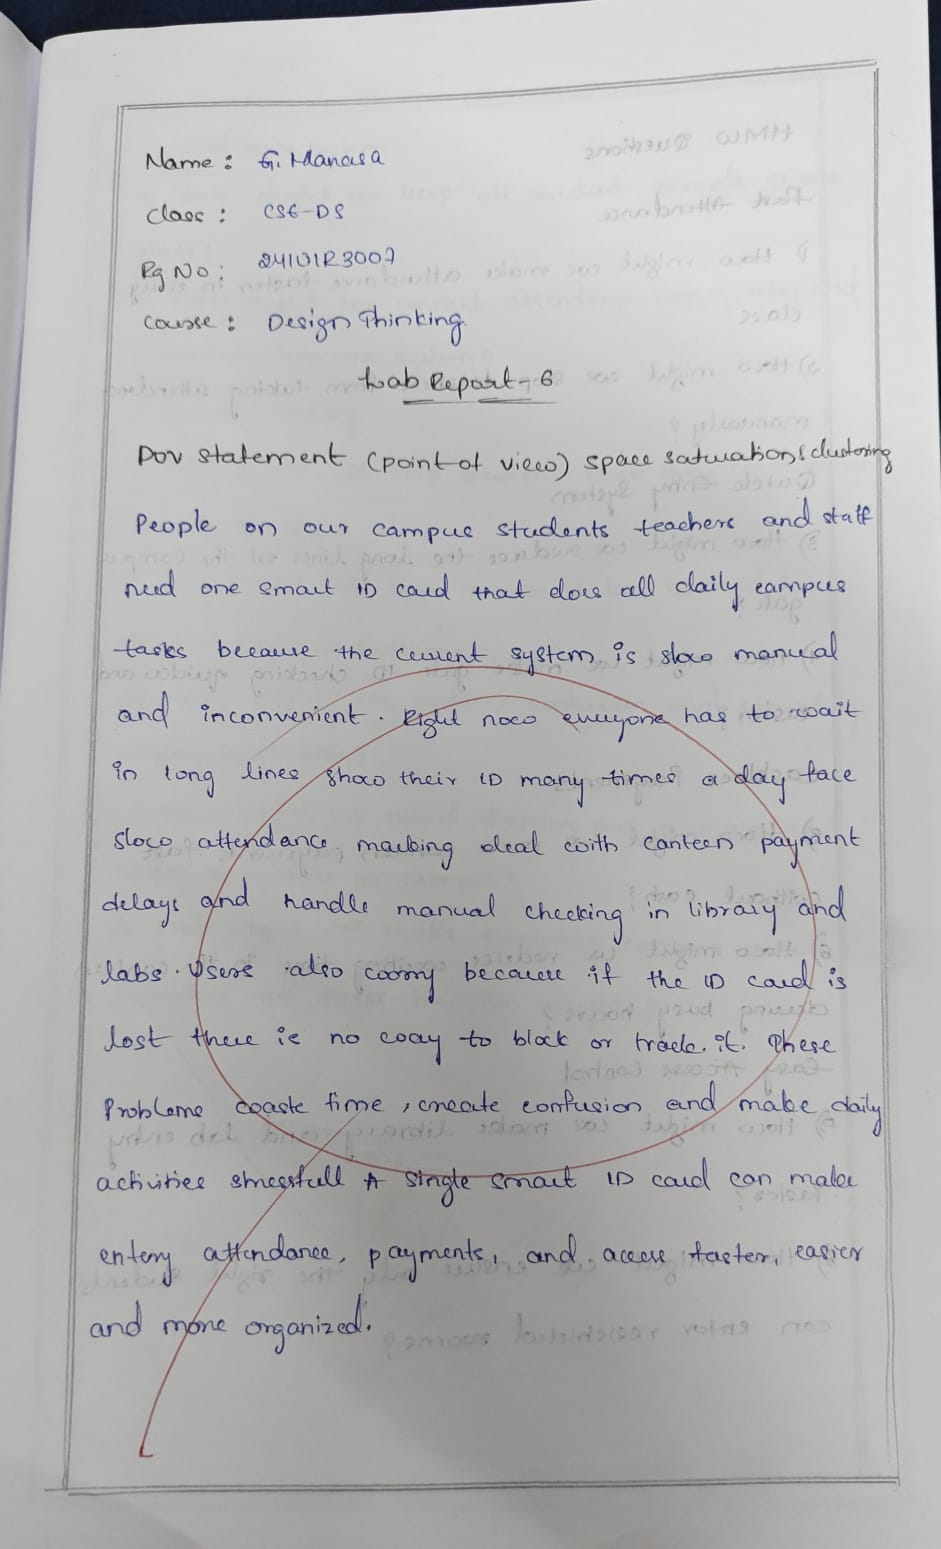 Name : G. Manasa
Class : CSE-DS
Rg No : 24101R3007
Course : Design Thinking
Lab Report-6
POV statement (point of view) space satuation & clustering
People on our campus students teachers and staff
need one smart ID card that does all daily campus
tasks because the current system is slow manual
and inconvenient. Right now everyone has to wait
in long lines show their ID many times a day face
slow attendance marking deal with canteen payment
delays and handle manual checking in library and
labs. Users also worry because if the ID card is
lost there is no way to block or track it. These
Problems waste time, create confusion and make daily
activities stressfull A single smart ID card can make
entery attendance, payments, and access faster, easier
and more organized.